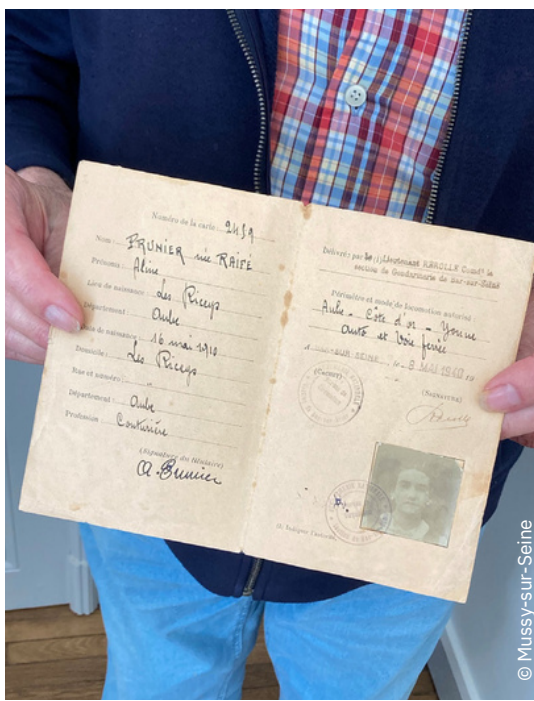 Numéro de la carte : 2459
Nom : PRUNIER née RAIFÉ
Prénoms : Aline
Lieu de naissance : Les Riceys
Département : Aube
Date de naissance : 16 mai 1910
Domicile : Les Riceys
Rue et numéro :
Département : Aube
Profession : Couturière
(Signature du titulaire)
A. Prunier
Délivré par le (1) Lieutenant KEROLLE Comdt la
section de Gendarmerie de Bar-sur-Seine
Périmètre et mode de locomotion autorisé :
Aube - Côte d'or - Yonne
auto et Voie ferrée
SUR SEINE, le 8 MAI 1940
(Cachet)
(Signature)
(1) Indiquer l'autorité.
© Mussy-sur-Seine